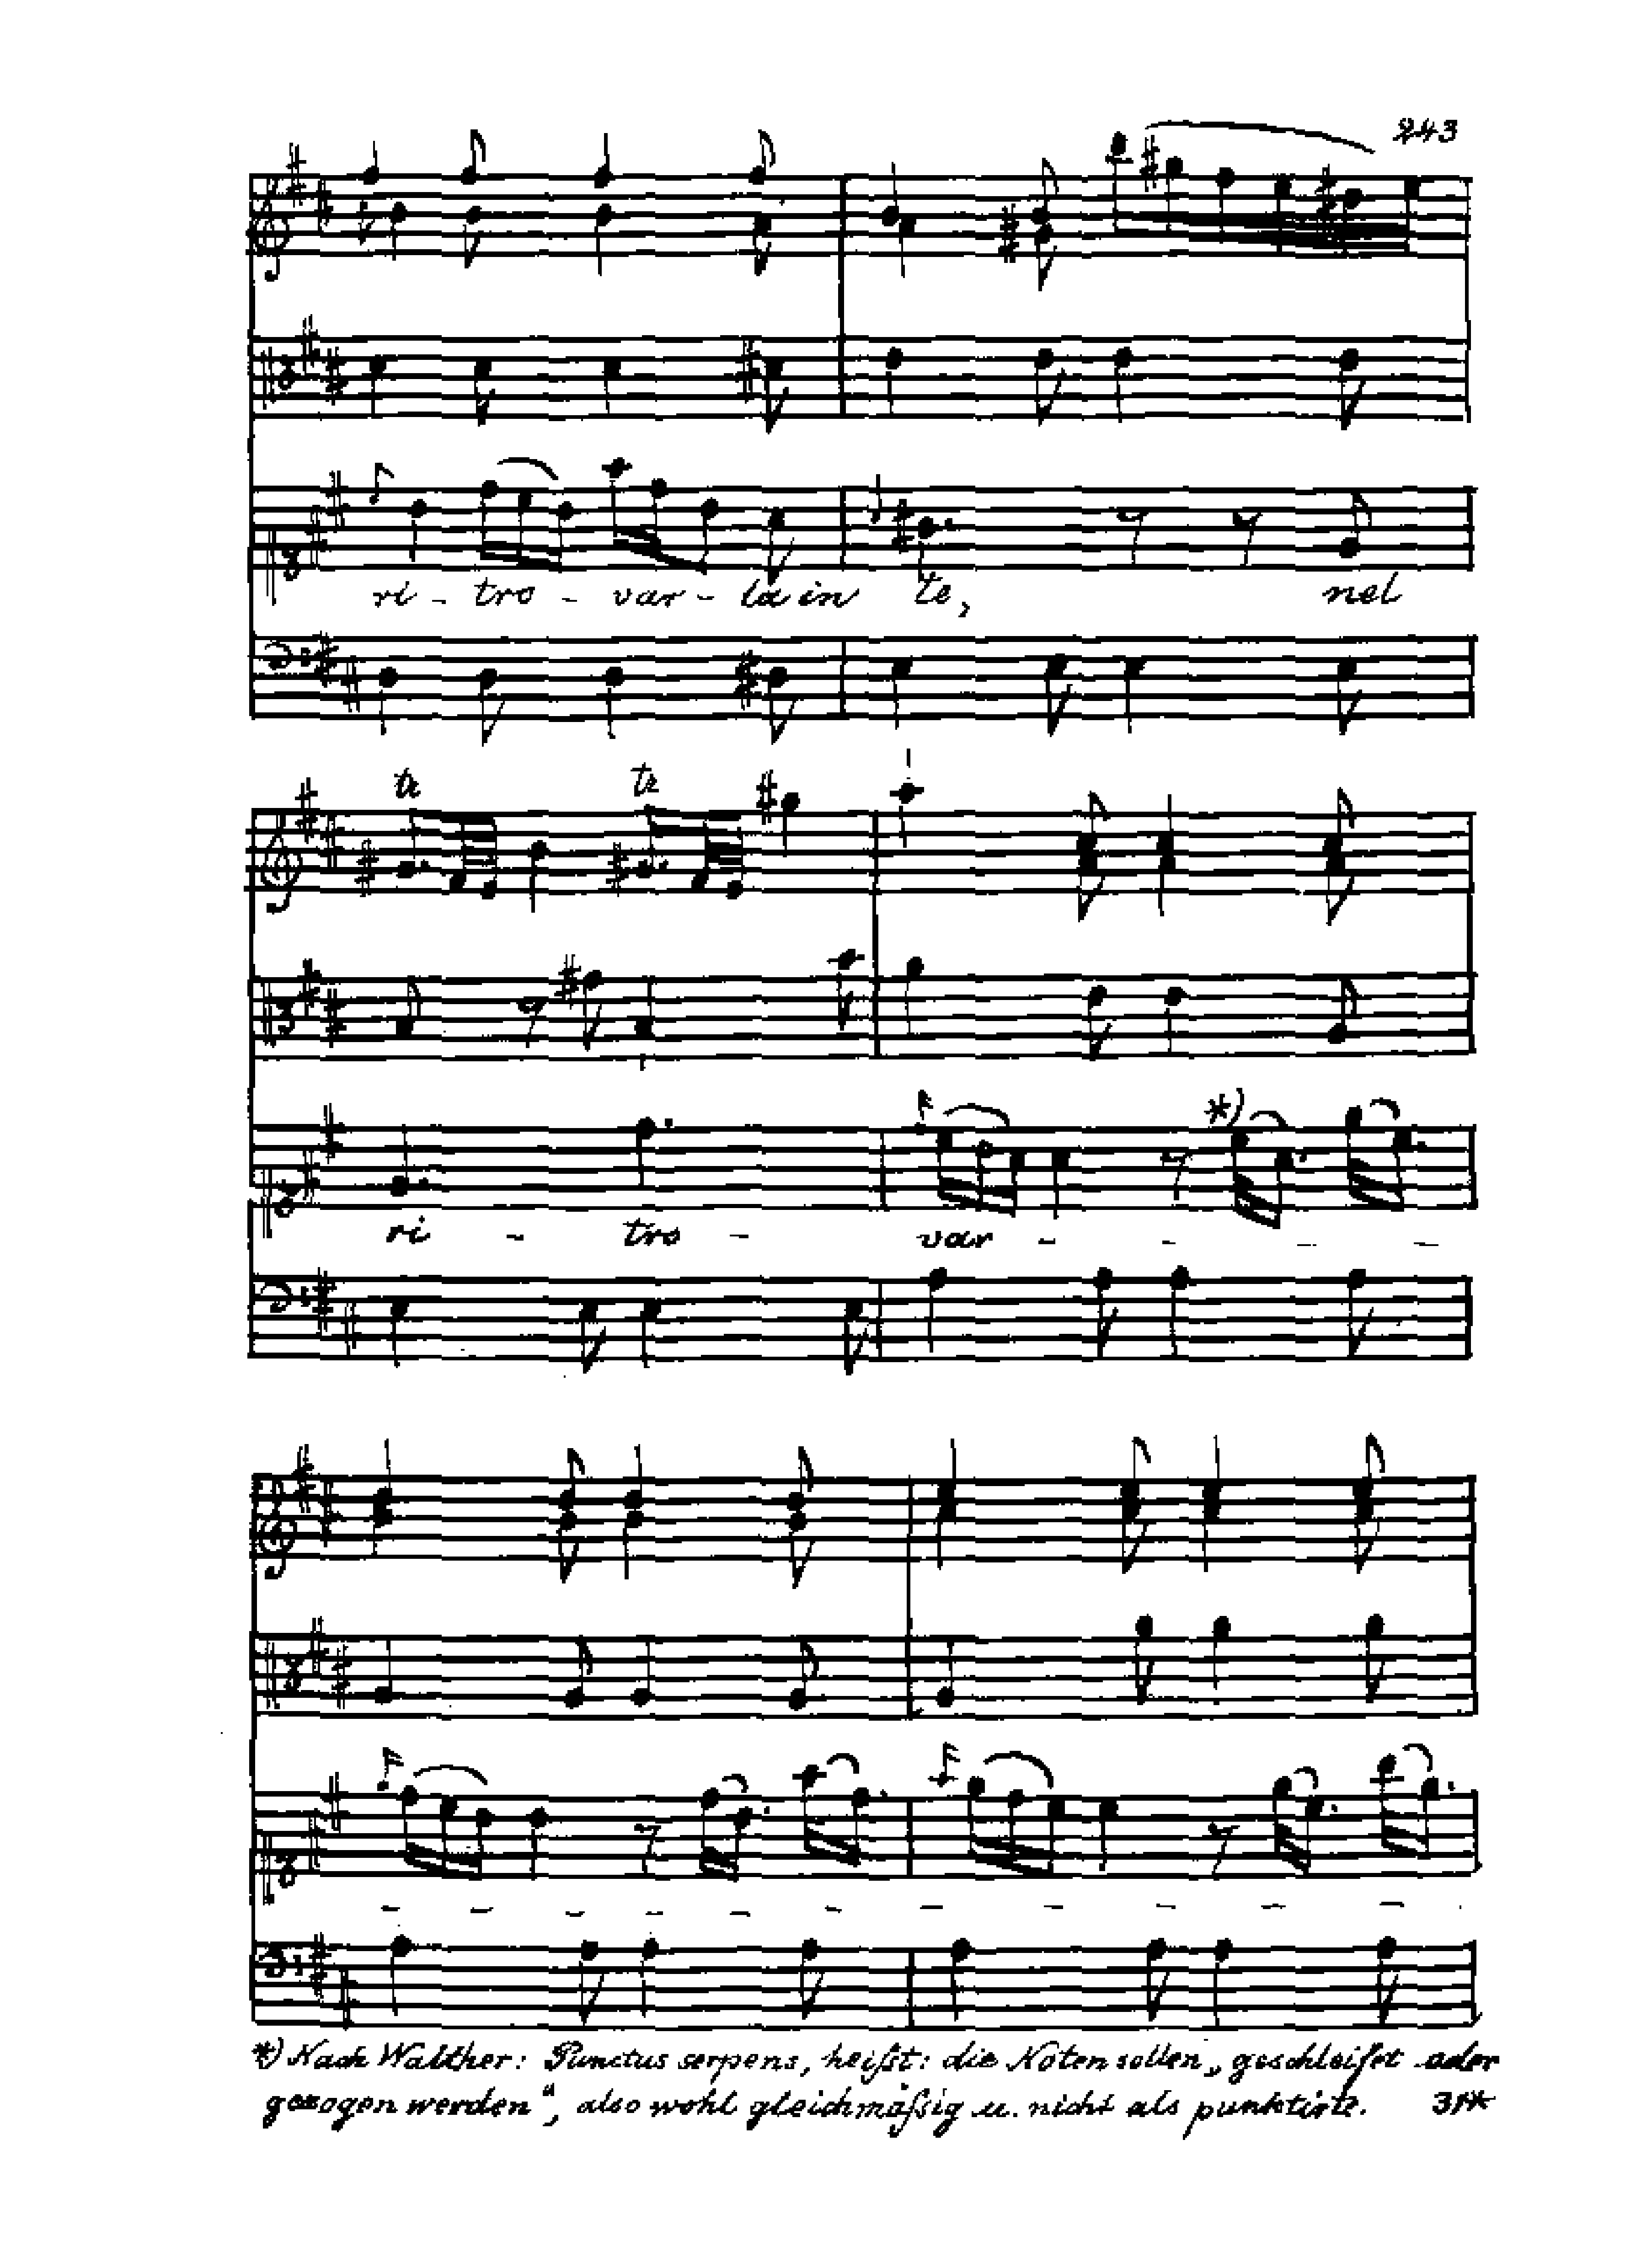 243
ri - tro - var - la in te, nel
tr tr
*)
ri - tro - var - - - -
- - - - - - - - - - -
*) Nach Walther: Punctus serpens, heißt: die Noten sollen „geschleifet oder
gezogen werden“, also wohl gleichmäßig u. nicht als punktirte. 31*